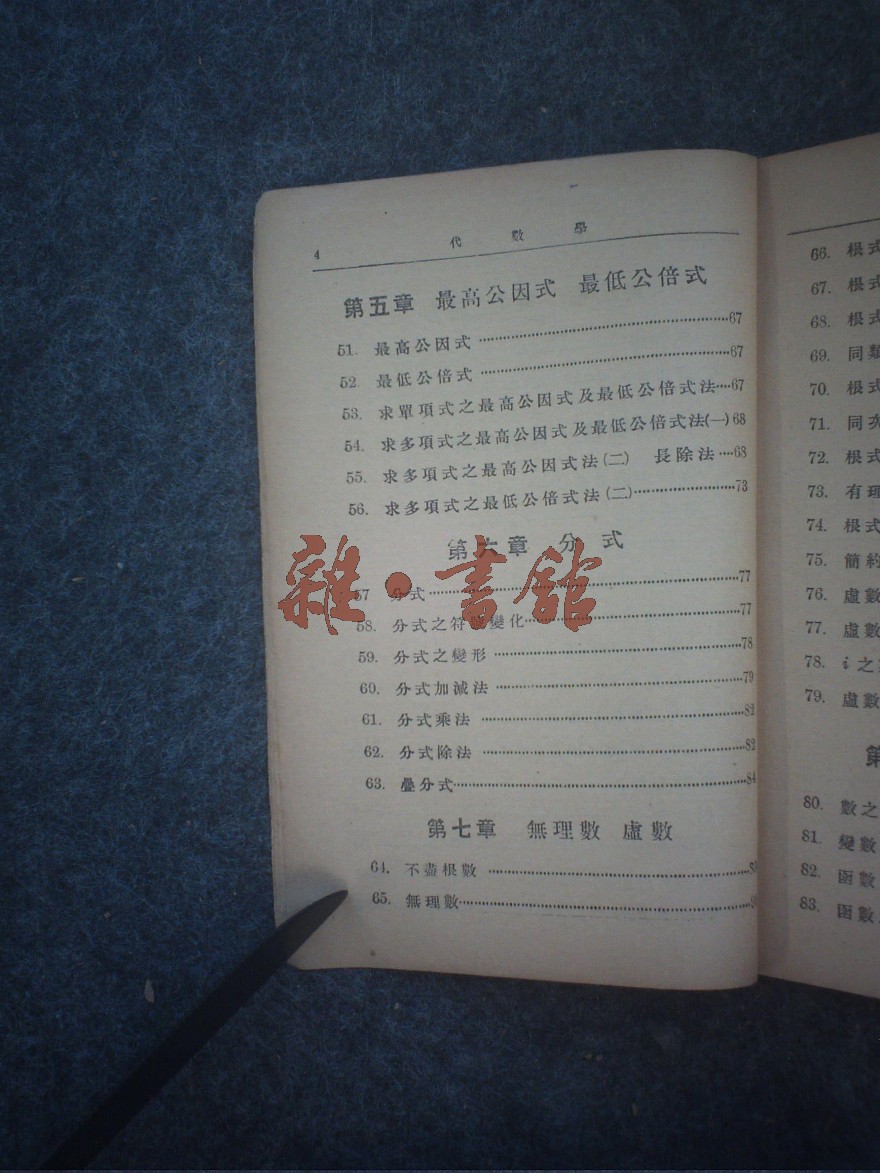 4 代數學
第五章 最高公因式 最低公倍式
51. 最高公因式……67
52. 最低公倍式……67
53. 求單項式之最高公因式及最低公倍式法…67
54. 求多項式之最高公因式及最低公倍式法(一)68
55. 求多項式之最高公因式法(二) 長除法…68
56. 求多項式之最低公倍式法(二)……73
第六章 分式
57 分式……77
58. 分式之符號變化……77
59. 分式之變形……78
60. 分式加減法……79
61. 分式乘法……82
62. 分式除法……82
63. 疊分式……84
第七章 無理數 虛數
64. 不盡根數……
65. 無理數……
雜·書館
66. 根式
67. 根式
68. 根式
69. 同類
70. 根式
71. 同次
72. 根式
73. 有理
74. 根式
75. 簡約
76. 虛數
77. 虛數
78. i之
79. 虛數
第
80. 數之
81. 變數
82. 函數
83. 函數